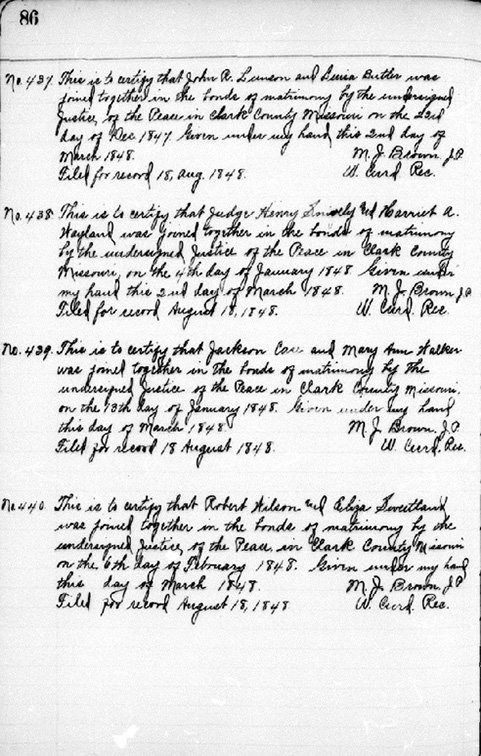 86
No. 437. This is to certify that John R. and Butler was
joined together in the bonds of matrimony by the undersigned
Justice of the Peace in Clark County Missouri on the 23rd
day of Dec. 1847. Given under my hand this 2nd day of
March 1848. M. J. Brown, J.P.
Filed for record 18, Aug. 1848. W. Curd Rec.
No. 438. This is to certify that Judge Henry and Harriet A.
Wayland was joined together in the bonds of matrimony
by the undersigned Justice of the Peace in Clark County
Missouri, on the 4th day of January 1848. Given under
my hand this 2nd day of March 1848. M. J. Brown J.P.
Filed for record August 18, 1848. W. Curd Rec.
No. 439. This is to certify that Jackson and Mary Ann Walker
was joined together in the bonds of matrimony by the
undersigned Justice of the Peace in Clark County Missouri,
on the 13th day of January 1848. Given under my hand
this day of March 1848. M. J. Brown, J.P.
Filed for record 18 August 1848. W. Curd, Rec.
No. 440. This is to certify that Robert Wilson and Eliza Sweetland
was joined together in the bonds of matrimony by the
undersigned Justice, of the Peace, in Clark County Missouri
on the 6th day of February 1848. Given under my hand
this day of March 1848. M. J. Brown, J.P.
Filed for record August 18, 1848. W. Curd, Rec.